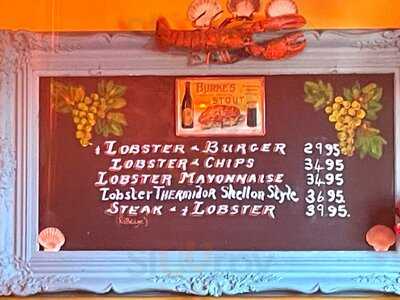 BURKE'S
STOUT
½ LOBSTER & BURGER 29.95
LOBSTER & CHIPS 34.95
LOBSTER MAYONNAISE 34.95
Lobster THERMIDOR Shellon Style 36.95
STEAK & ½ LOBSTER 39.95.